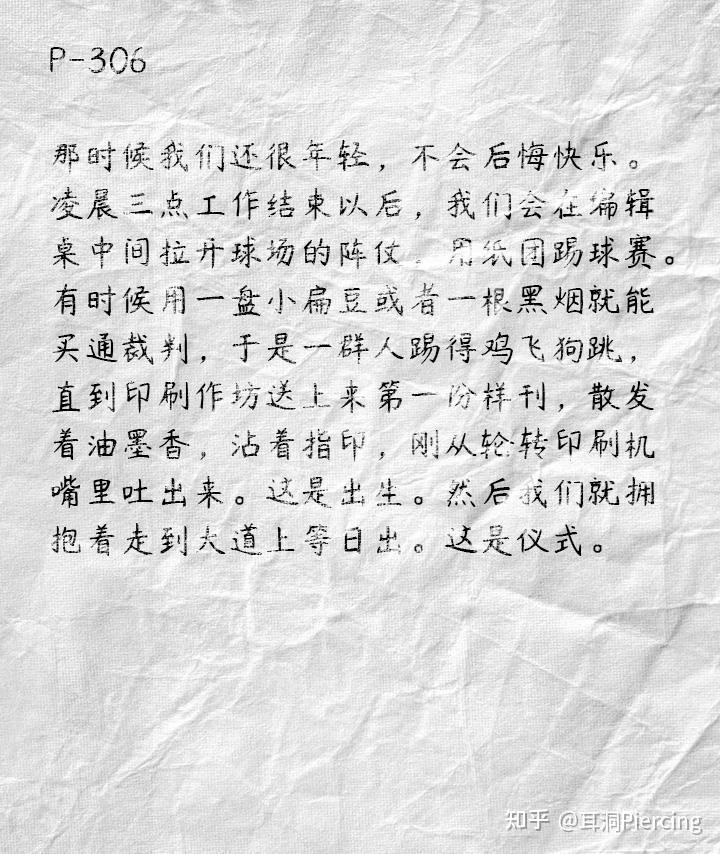 P-306
那时候我们还很年轻，不会后悔快乐。
凌晨三点工作结束以后，我们会在编辑
桌中间拉开球场的阵仗，用纸团踢球赛。
有时候用一盘小扁豆或者一根黑烟就能
买通裁判，于是一群人踢得鸡飞狗跳，
直到印刷作坊送上来第一份样刊，散发
着油墨香，沾着指印，刚从轮转印刷机
嘴里吐出来。这是出生。然后我们就拥
抱着走到大道上等日出。这是仪式。
知乎 @耳洞Piercing